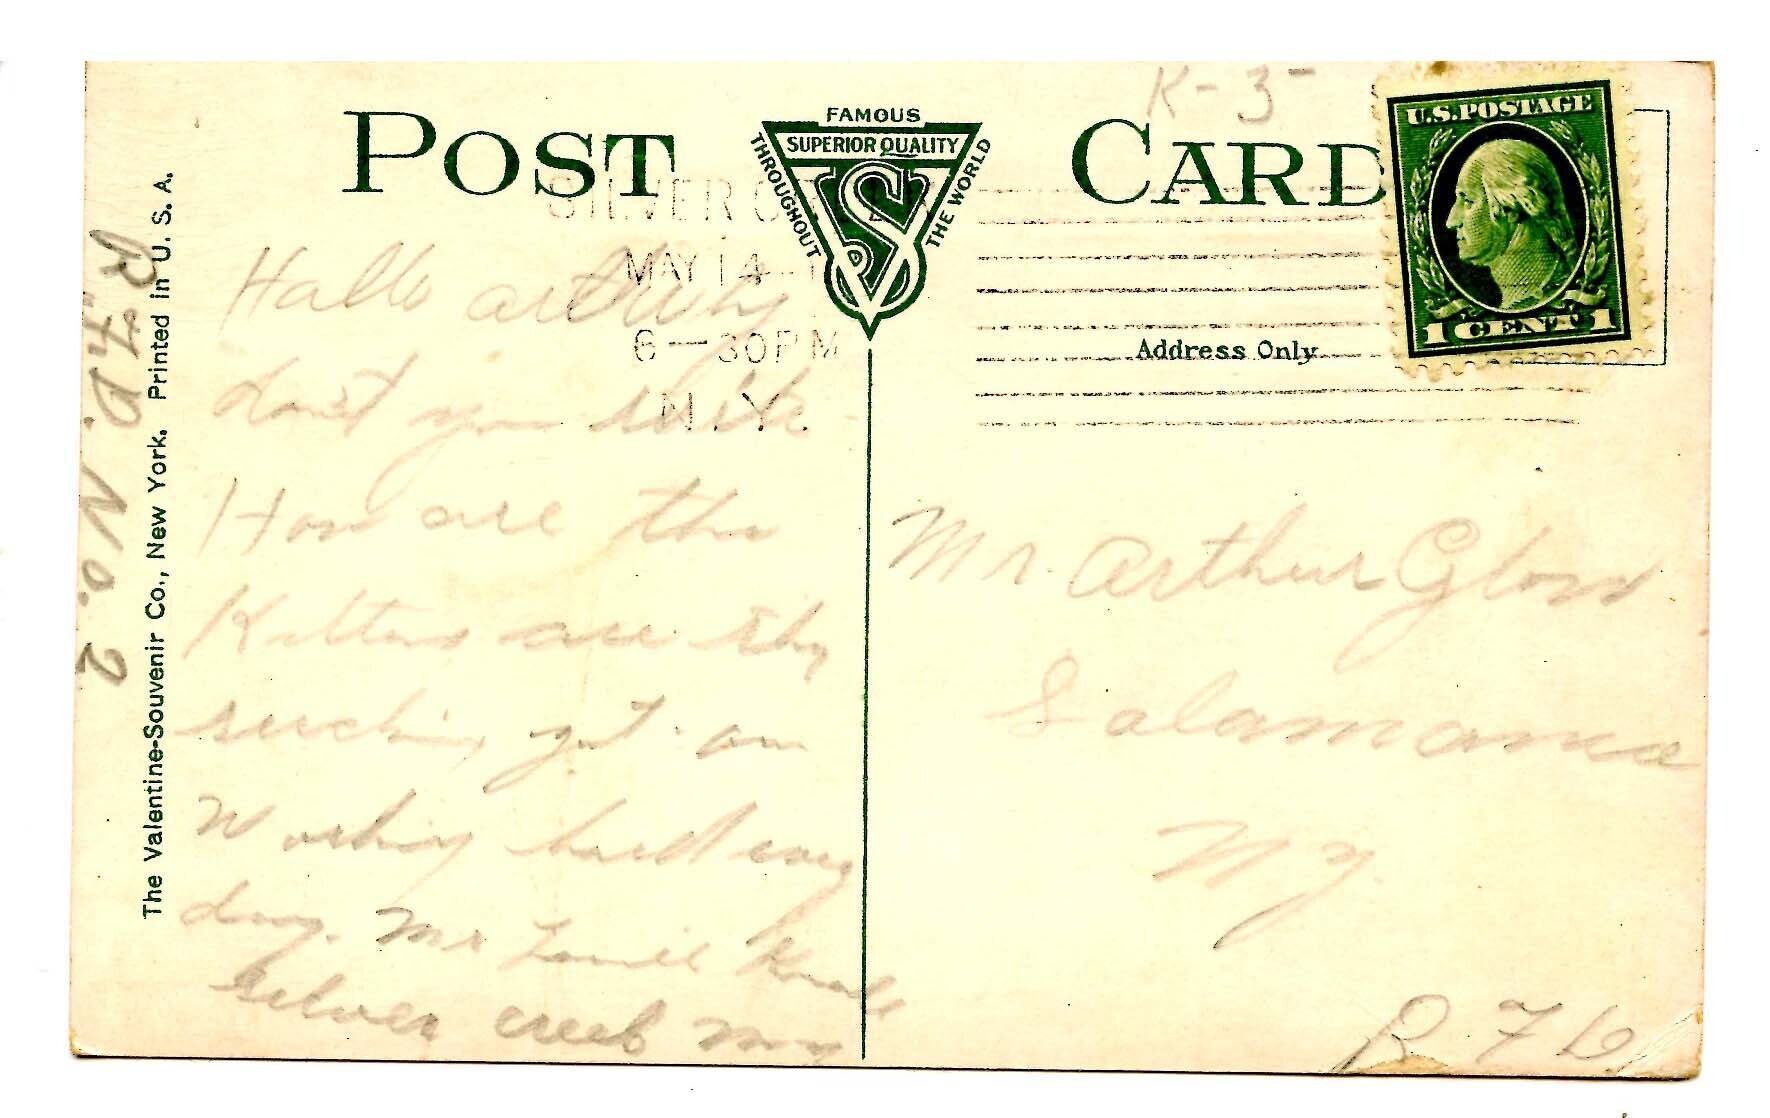 K-3
POST CARD
FAMOUS
SUPERIOR QUALITY
THROUGHOUT
THE WORLD
VS
U.S.POSTAGE
1 CENT 1
SILVER CREEK
MAY 14
6-30 PM
N.Y.
Address Only
Hallo
don't you
How are the
Kittens are
yet. am
Working hard every
day. Mr
Silver creek N y
Mr. Arthur Gloss
Salamanca
N y.
R F D
R.F.D. No. 2
The Valentine-Souvenir Co., New York. Printed in U. S. A.